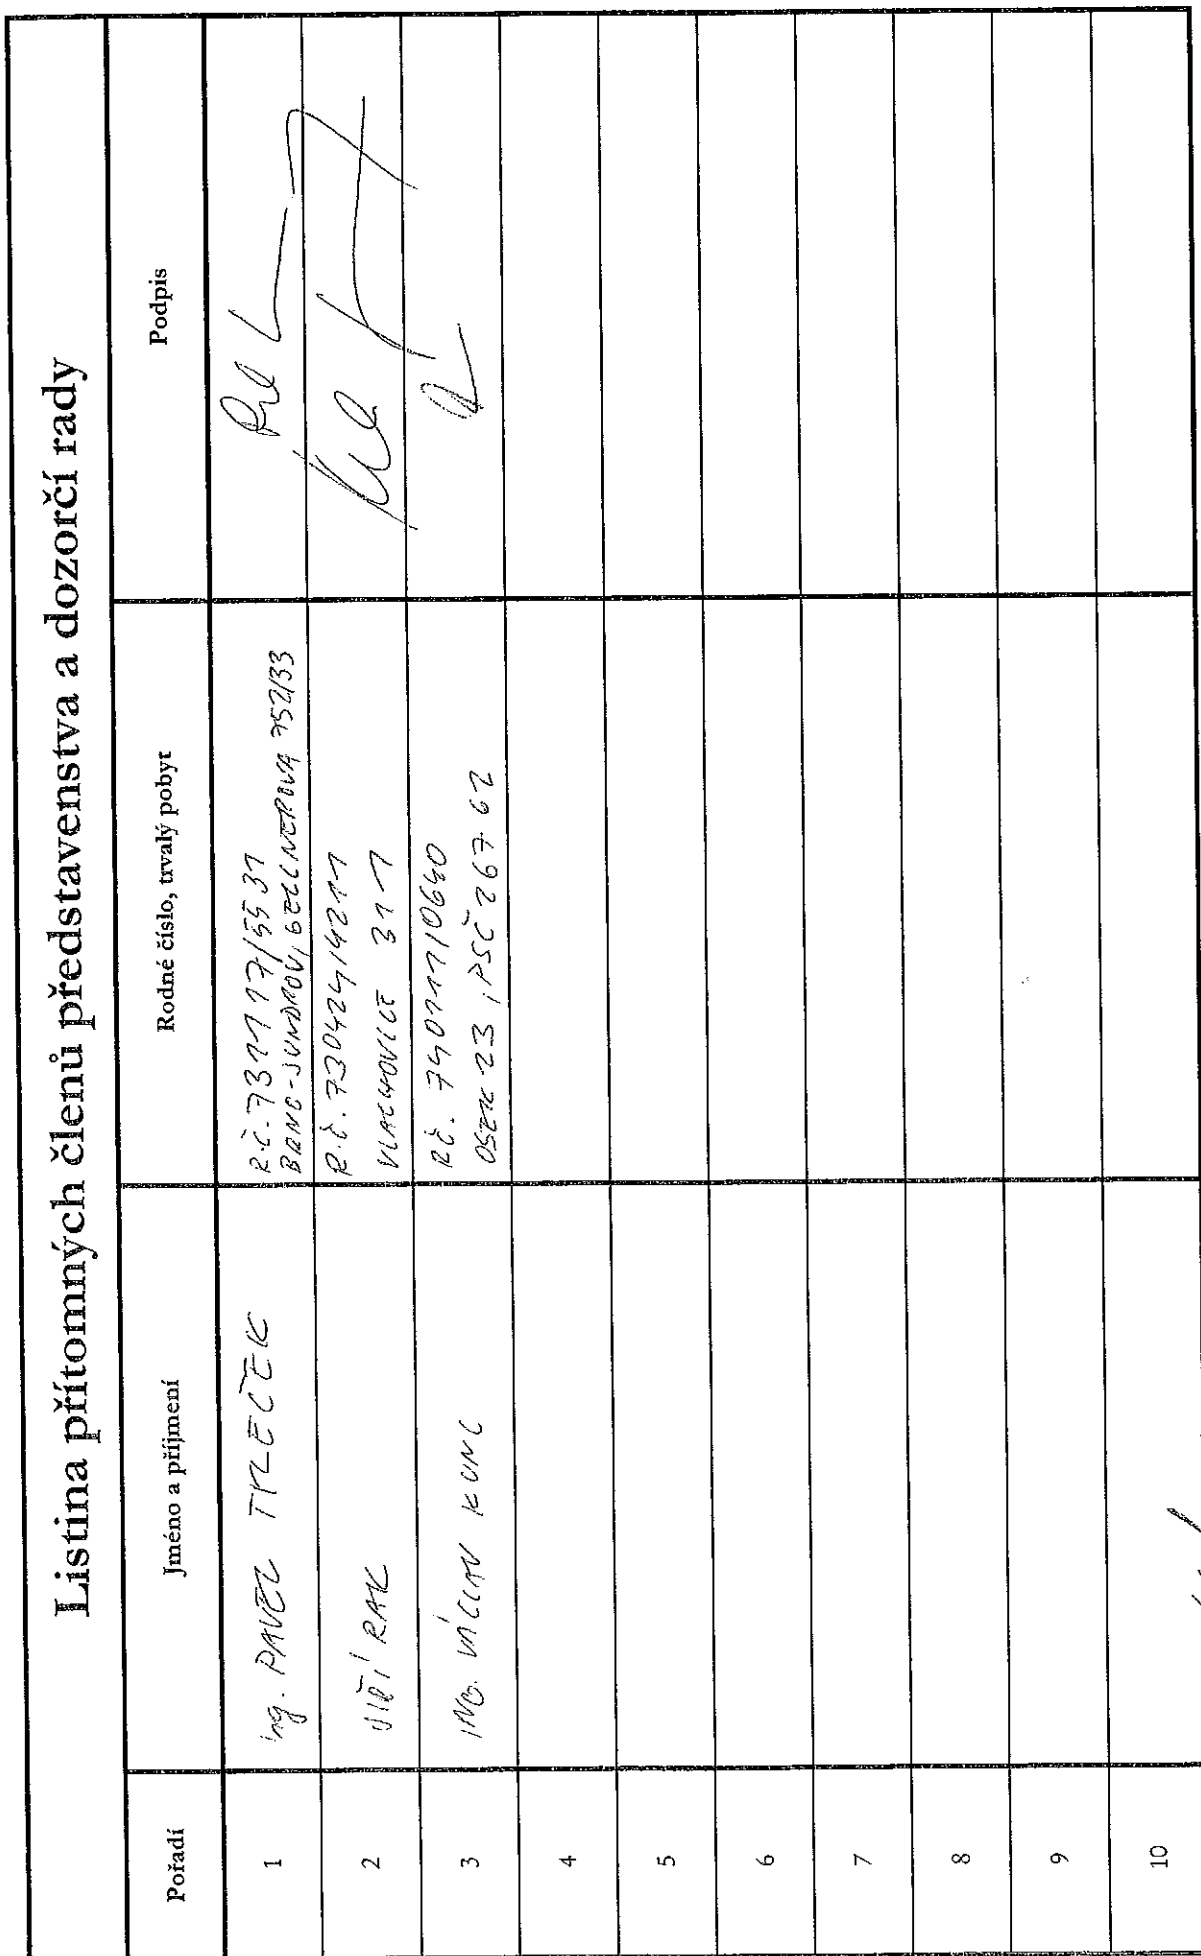 Listina přítomných členů představenstva a dozorčí rady
Pořadí
Jméno a příjmení
Rodné číslo, trvalý pobyt
Podpis
1
ing. PAVEL TYLEČEK
R.Č. 731117/5531
BRNO-JUNDROV, GELLNEROVA 752/33
2
JIŘÍ RAK
R.Č. 730424/4211
VLACHOVICE 311
3
ING. VÁCLAV KUNC
RČ. 740111/0640
OSEK 23, PSČ 267 62
4
5
6
7
8
9
10